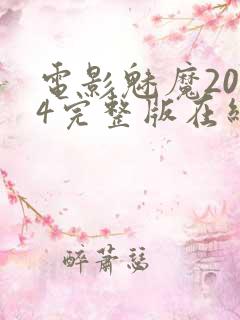 電影魅魔20
4完整版在線
醉蕭瑟